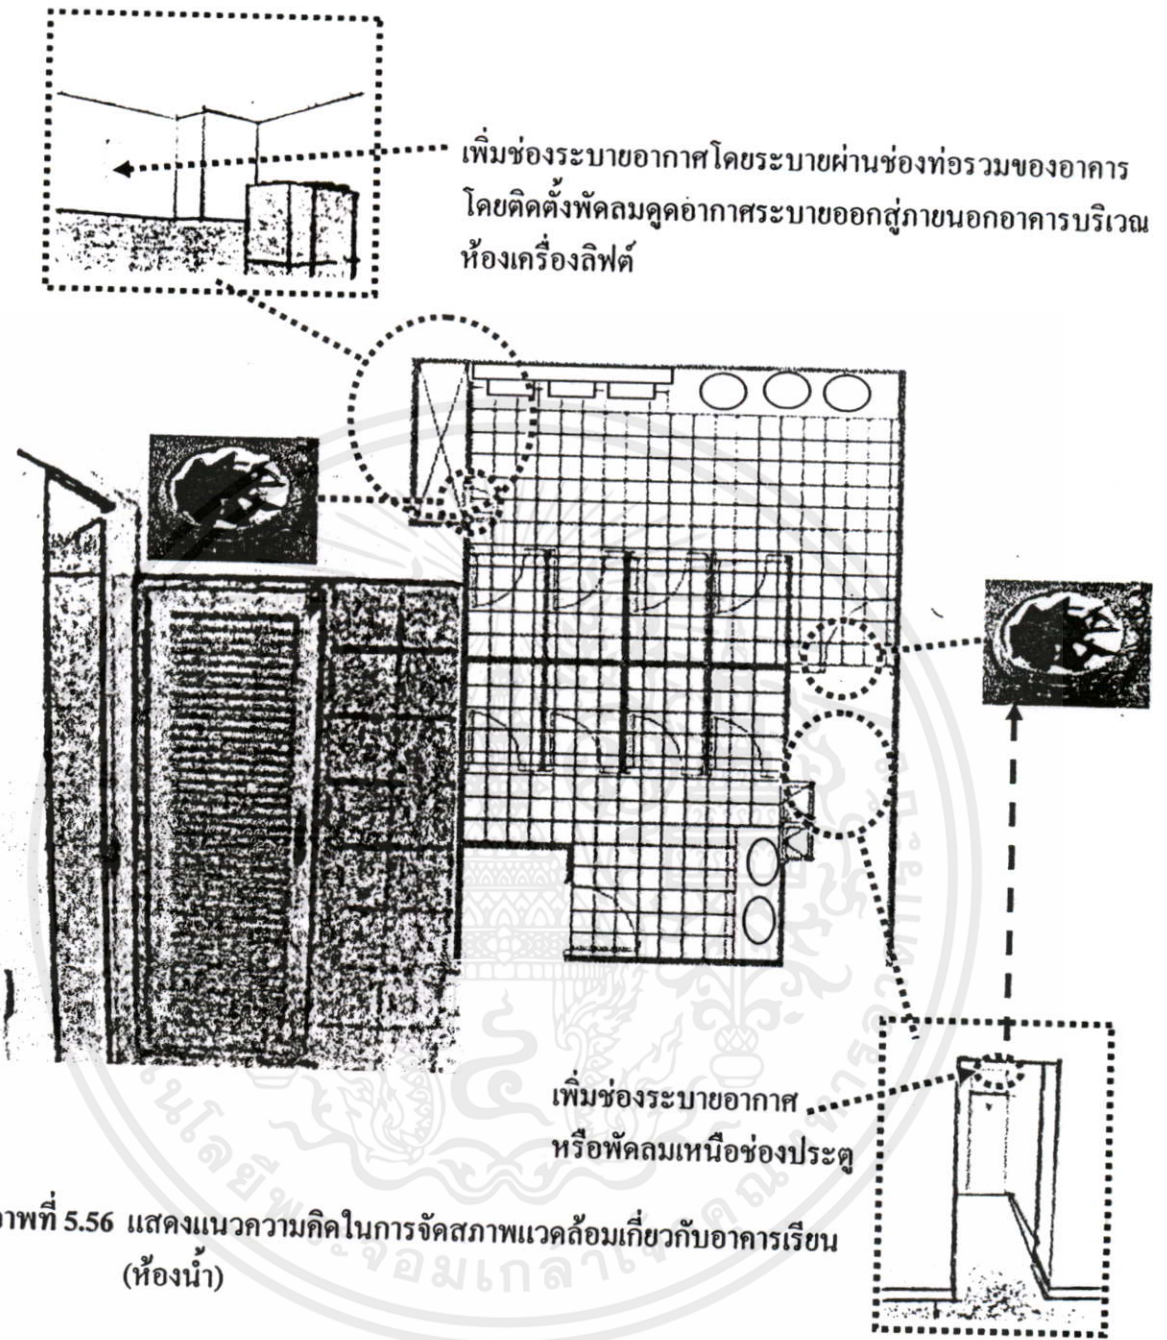 เพิ่มช่องระบายอากาศโดยระบายผ่านช่องท่อรวมของอาคาร
โดยติดตั้งพัดลมดูดอากาศระบายออกสู่ภายนอกอาคารบริเวณ
ห้องเครื่องลิฟต์
เพิ่มช่องระบายอากาศ
หรือพัดลมเหนือช่องประตู
าพที่ 5.56 แสดงแนวความคิดในการจัดสภาพแวดล้อมเกี่ยวกับอาคารเรียน
(ห้องน้ำ)